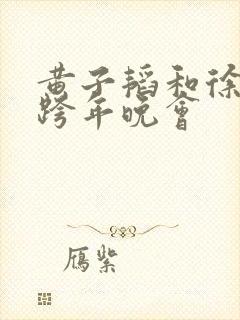 黄子韬和徐
跨年晚会
雁紫